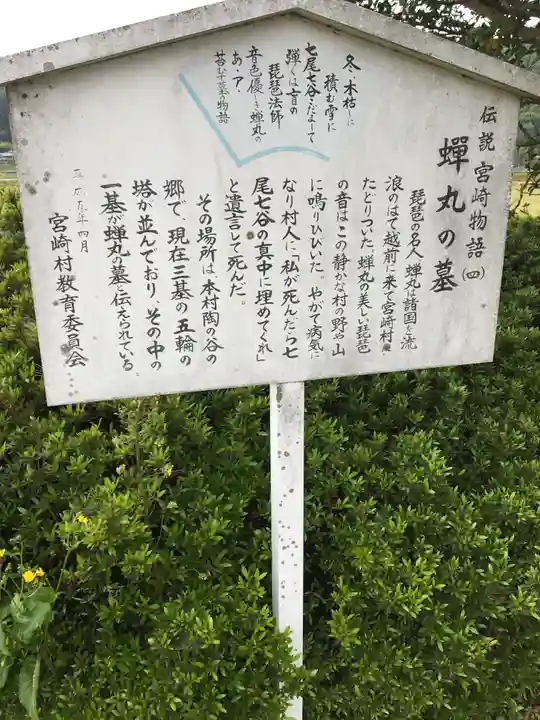 伝説 宮崎物語(四)
蟬丸の墓
琵琶の名人蟬丸は諸国を流
浪のはて越前に来て宮崎村に
たどりついた。蟬丸の美しい琵琶
の音はこの静かな村の野や山
に鳴りひびいた。やがて病気に
なり村人に「私が死んだら七
尾七谷の真中に埋めてくれ」
と遺言して死んだ。
その場所は、本村陶の谷の
郷で、現在三基の五輪の
塔が並んでおり、その中の
一基が蟬丸の墓と伝えられている。
平成五年四月
宮崎村教育委員会
冬・木枯しに
積む雪に
七尾七谷・こだまして
弾くは盲の
琵琶法師
あ・ア・
音色優しき蟬丸の
苔むす墓の物語